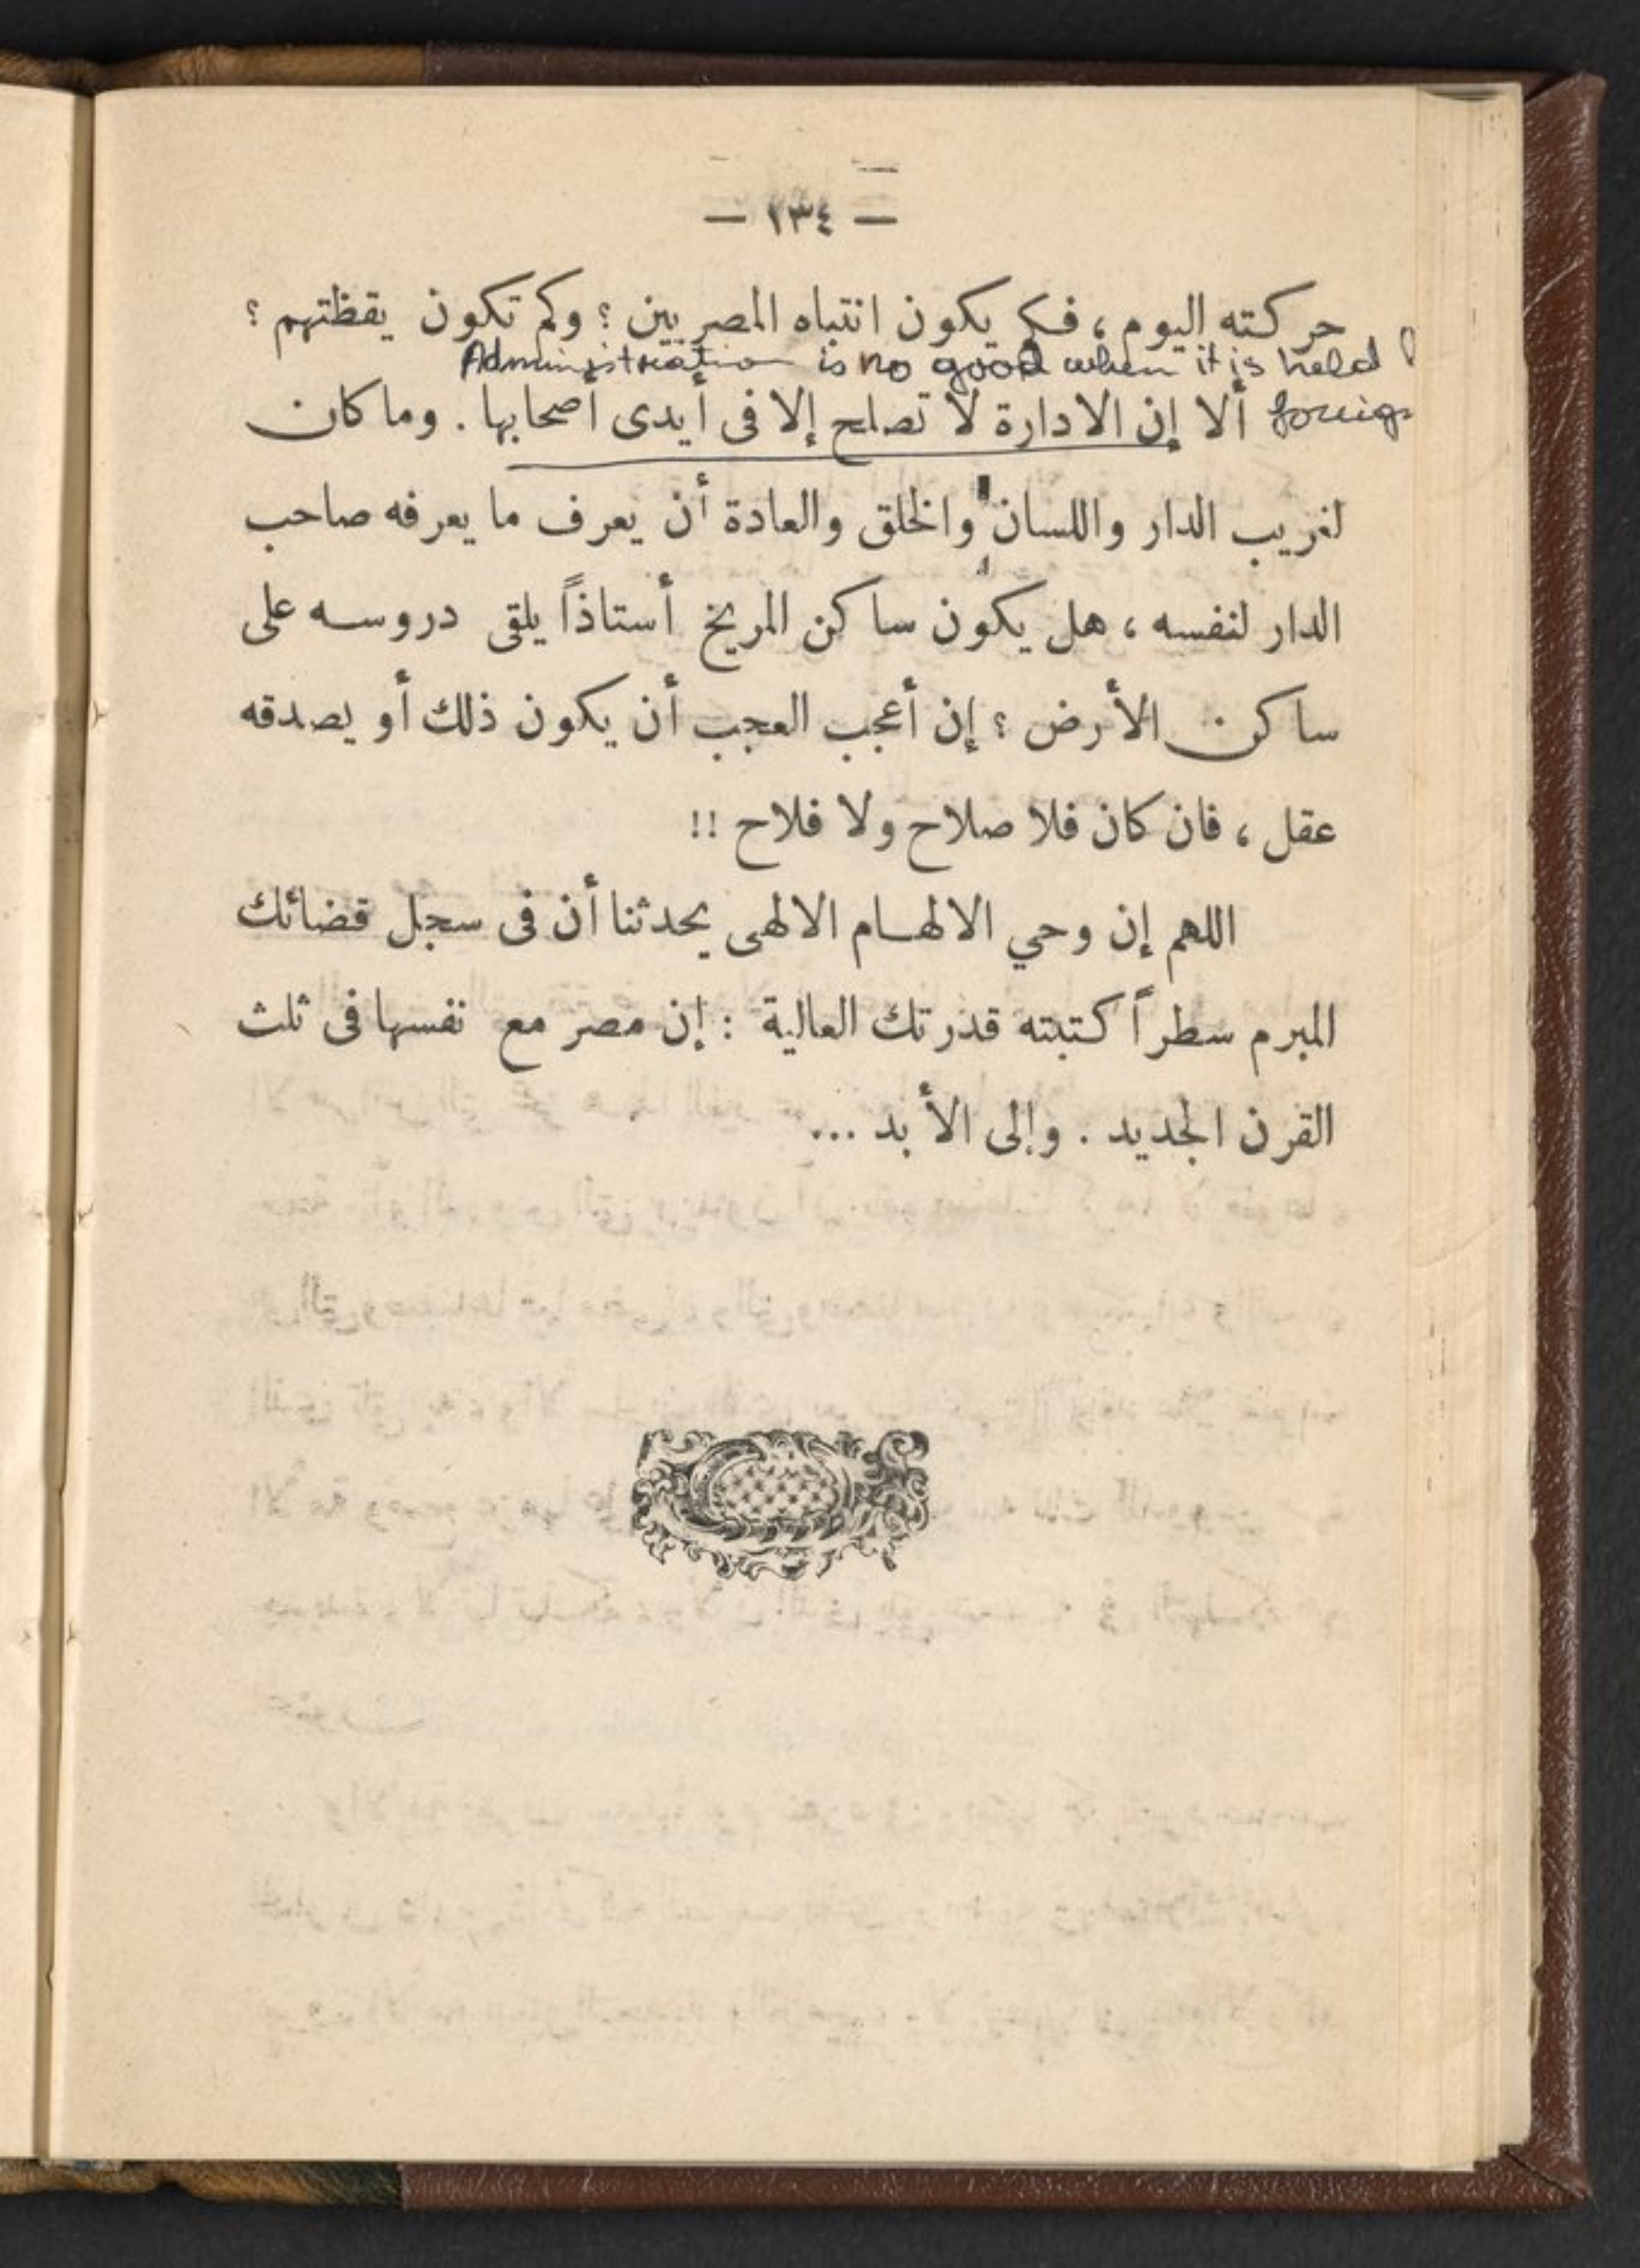 — ١٣٤ —
حركته اليوم ، فكم يكون انتباه المصريين ؟ وكم تكون يقظتهم ؟
Administration is no good when it is held
ألا إن الادارة لا تصلح إلا فى أيدى أصحابها . وما كان
لغريب الدار واللسان والخلق والعادة أن يعرف ما يعرفه صاحب
الدار لنفسه ، هل يكون ساكن المريخ أستاذاً يلقى دروسه على
ساكن الأرض ؟ إن أعجب العجب أن يكون ذلك أو يصدقه
عقل ، فان كان فلا صلاح ولا فلاح !!
اللهم إن وحي الالهام الالهى يحدثنا أن فى سجل قضائك
المبرم سطراً كتبته قدرتك العالية : إن مصر مع نفسها فى ثلث
القرن الجديد . وإلى الأبد ...